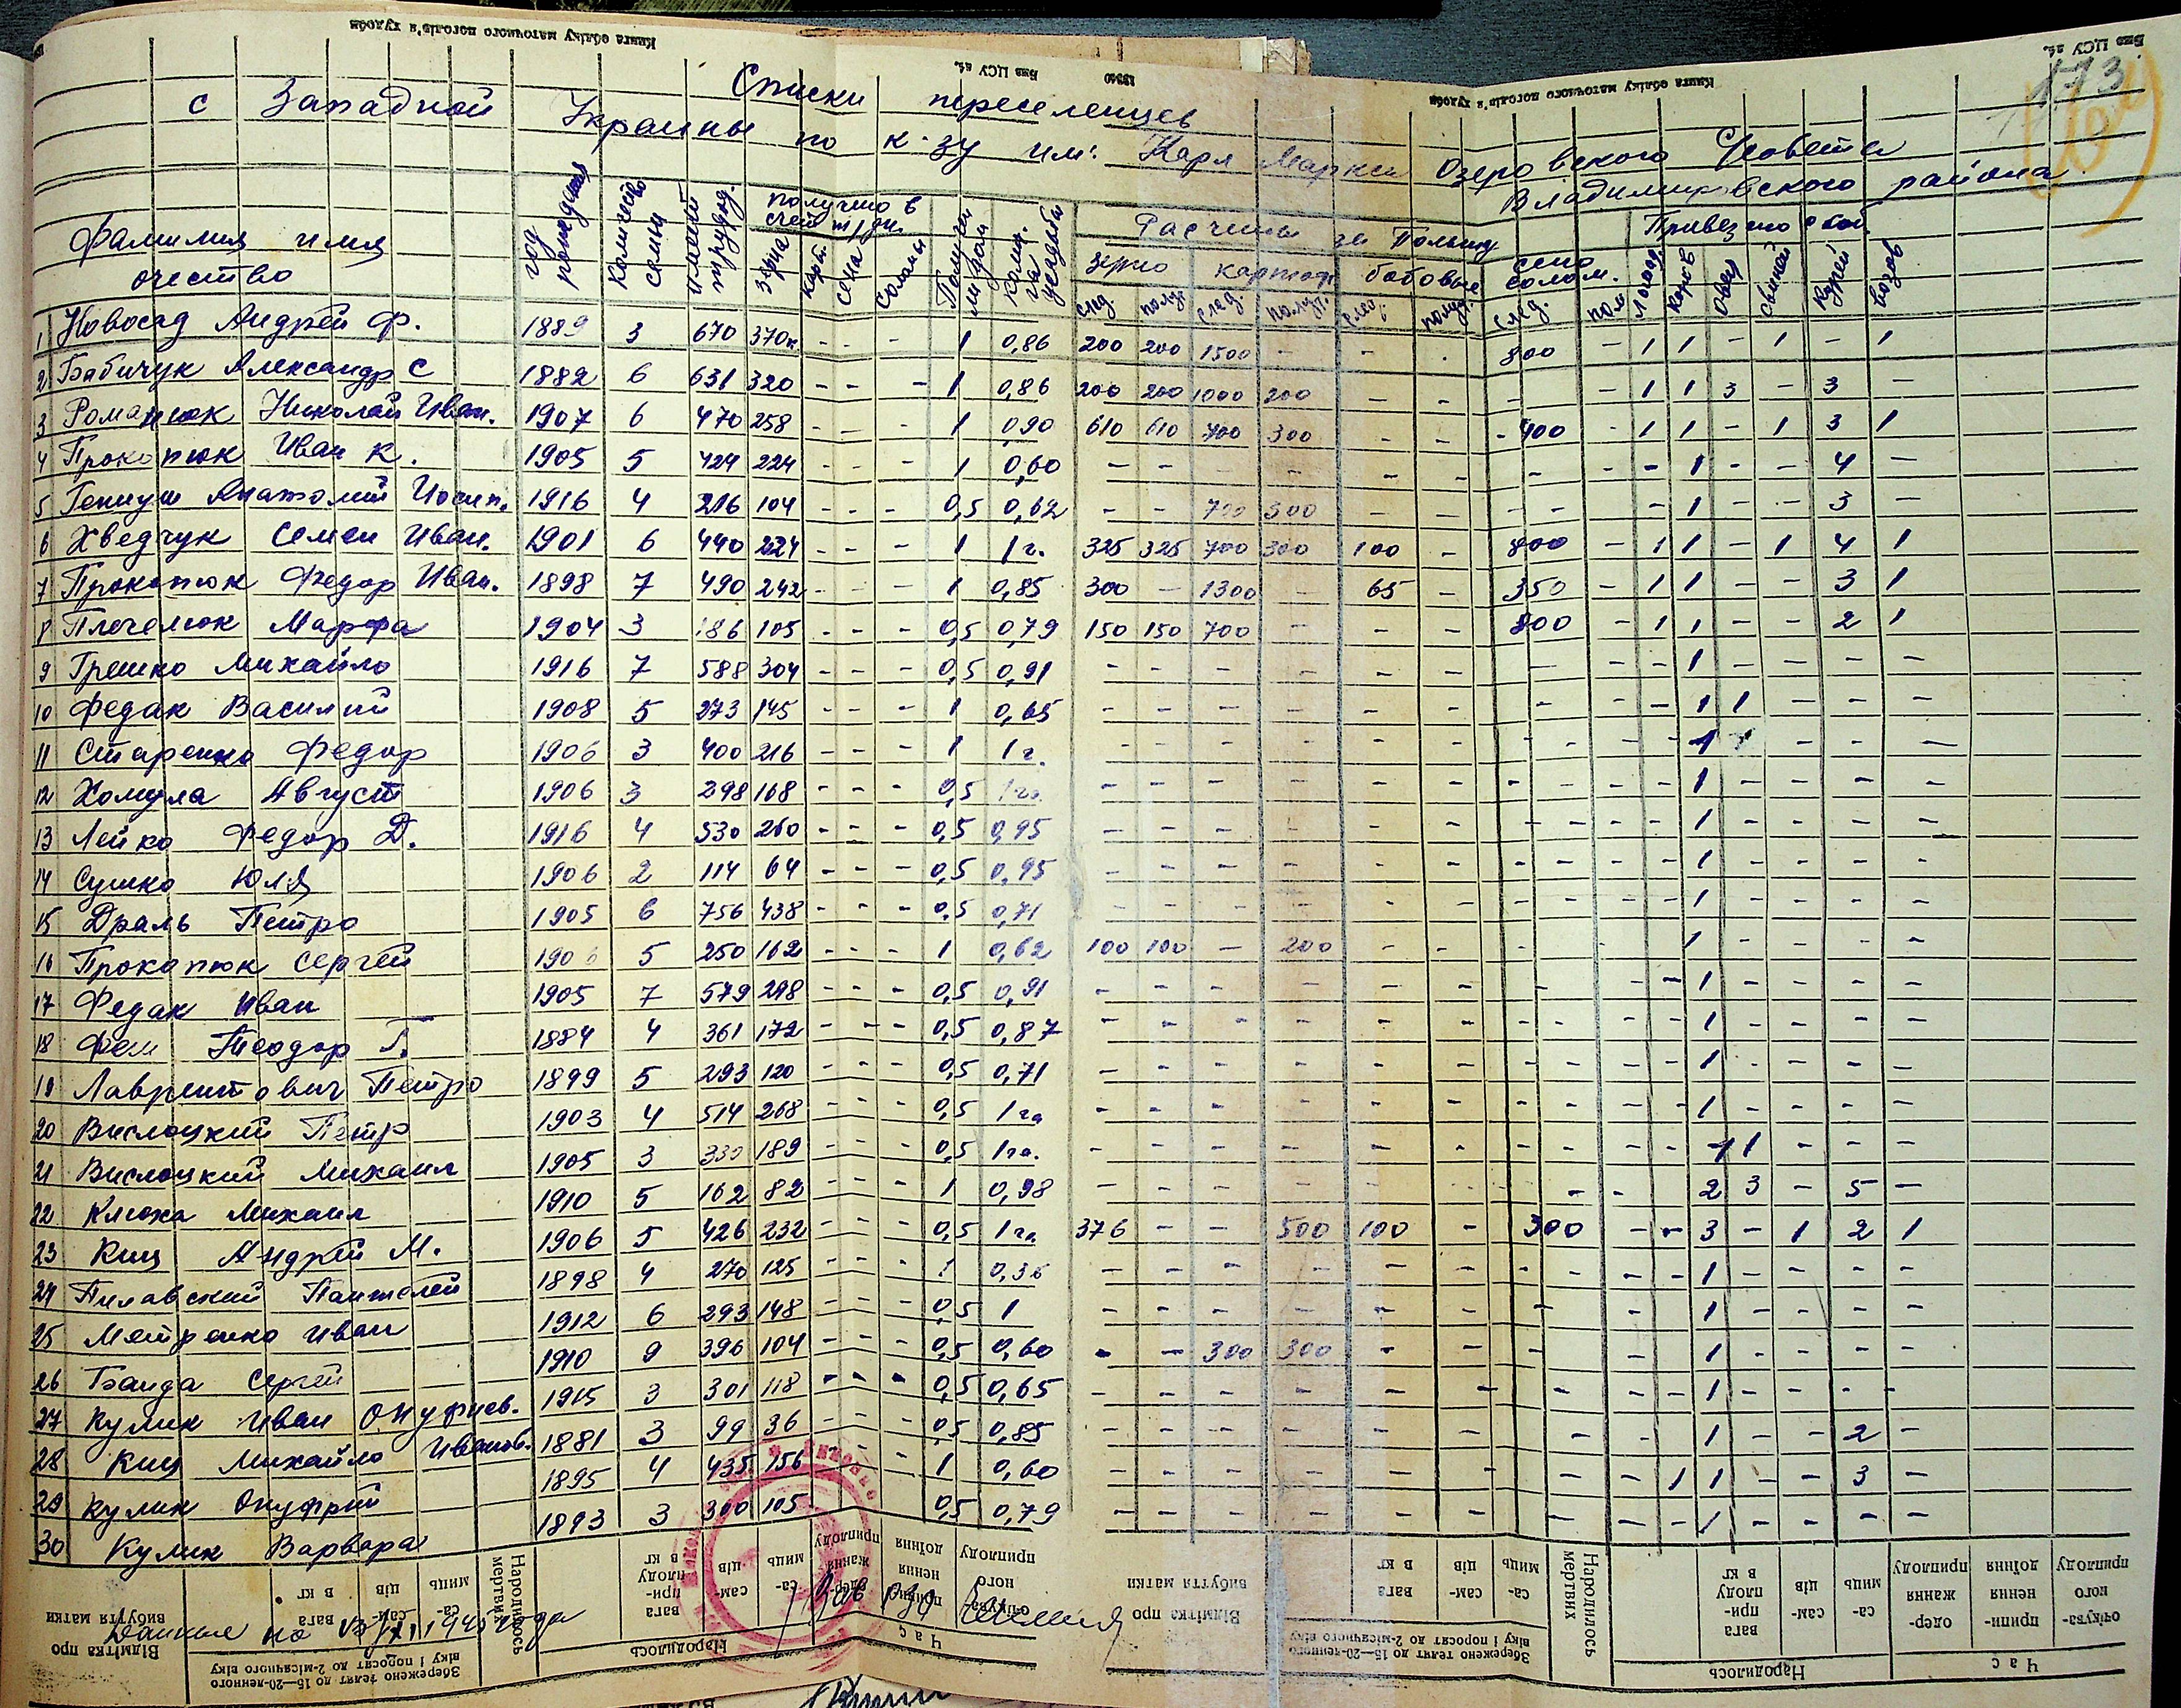 173
Списки переселенцев
с Западной Украины по к-зу им. Карл Маркса Озеровского Совета
Владимировского района
Фамилия имя очество год рождения Количество семьи имеет трудод. получено в счет т/дн. зерна карт. сена соломы Колич. га усадьбы Расчеты за Польшу зерно картоф бобовые сено солом. след. полуг. след. получ. след. получ. след. пол. Привезено с соб. лошад. коров овец свиней курей возов
1 Новосад Андрей Ф. 1889 3 670 370к - - - 1 0,86 200 200 1500 - - . 800 - 1 1 - 1 - 1
2 Бабичук Александр С 1882 6 631 320 - - - 1 0,86 200 200 1000 200 - - - - 1 1 3 - 3 -
3 Романюк Николай Иван. 1907 6 470 258 - - - 1 0,90 610 610 700 300 - - 400 - 1 1 - 1 3 1
4 Прокопюк Иван К. 1905 5 424 224 - - - 1 0,60 - - - - - - - - - 1 - - 4 -
5 Гениуш Анатолий Иосип. 1916 4 216 104 - - - 0,5 0,62 - - 700 300 - - - - - 1 - - 3 -
6 Хведчук Семен Иван. 1901 6 440 224 - - - 1 1 г. 325 325 700 300 100 - 800 - 1 1 - 1 4 1
7 Прокопюк Федор Иван. 1898 7 490 242 - - - 1 0,85 300 - 1300 - 65 - 350 - 1 1 - - 3 1
8 Плечелюк Марфа 1904 3 186 105 - - - 0,5 0,79 150 150 700 - - - 800 - 1 1 - - 2 1
9 Грешко Михайло 1916 7 588 304 - - - 0,5 0,91 - - - - - - - - - 1 - - - -
10 Федак Василий 1908 5 273 145 - - - 1 0,65 - - - - - - - - - 1 1 - - -
11 Старенко Федор 1906 3 400 216 - - - 1 1 г. - - - - - - - - - 1 - - -
12 Хомула Август 1906 3 298 168 - - - 0,5 1 га - - - - - - - - - 1 - - - -
13 Лейко Федор Д. 1916 4 530 260 - - - 0,5 0,95 - - - - - - - - - 1 - - - -
14 Сушко Юля 1906 2 114 64 - - - 0,5 0,95 - - - - - - - - - 1 - - - -
15 Драль Петро 1905 6 756 438 - - - 0,5 0,71 - - - - - - - - - 1 - - - -
16 Прокопюк Сергей 1906 5 250 162 - - - 1 0,62 100 100 - 200 - - - - 1 - - - -
17 Федак Иван 1905 7 579 298 - - - 0,5 0,91 - - - - - - - - - 1 - - - -
18 Фем Теодор Г. 1884 4 361 172 - - - 0,5 0,87 - - - - - - - - - 1 - - - -
19 Лаврентович Петро 1899 5 293 120 - - - 0,5 0,71 - - - - - - - - - 1 - - - -
20 Вислоцкий Петр 1903 4 514 268 - - - 0,5 1 га - - - - - - - - - 1 - - - -
21 Вислоцкий Михаил 1905 3 330 189 - - - 0,5 1 га. - - - - - - - - - 1 1 - - -
22 Клюха Михаил 1910 5 162 82 - - - 1 0,98 - - - - - - - - 2 3 - 5 -
23 Кищ Андрей М. 1906 5 426 232 - - - 0,5 1 га 376 - - 500 100 - 300 - - 3 - 1 2 1
24 Пилавский Пантелей 1898 4 270 125 - - - 1 0,36 - - - - - - - - - 1 - - - -
25 Метренко Иван 1912 6 293 148 - - - 0,5 1 - - - - - - - - - 1 - - - -
26 Банда Сергей 1910 9 396 104 - - - 0,5 0,60 - - 300 300 - - - 1 - - - -
27 Кулик Иван Онуфриев. 1915 3 301 118 - - - 0,5 0,65 - - - - - - - - - 1 - - - -
28 Кищ Михайло Иванов. 1881 3 99 36 - - - 0,5 0,85 - - - - - - - - 1 - - 2 -
29 Кулик Онуфрий 1895 4 435 156 - - 1 0,60 - - - - - - - - 1 1 - - 3 -
30 Кулик Варвара 1893 3 300 105 0,5 0,79 - - - - - - - - - 1 - - - -
Данные на 1945 года
Книга обліку маточного поголів'я худоби
Бнв ЦСУ
Книга обліку маточного поголів'я худоби
Бнв ЦСУ
Відмітка про вибуття матки
Збережено телят до 15—20-денного віку і поросят до 2-місячного віку
самиць самців вага в кг
Народилось мертвих
Народилось
самиць самців вага приплоду в кг
Час
одержання приплоду припинення доїння очікуваного приплоду
Відмітка про вибуття матки
Збережено телят до 15—20-денного віку і поросят до 2-місячного віку
самиць самців вага в кг
Народилось мертвих
Народилось
самиць самців вага приплоду в кг
Час
одержання приплоду припинення доїння очікуваного приплоду